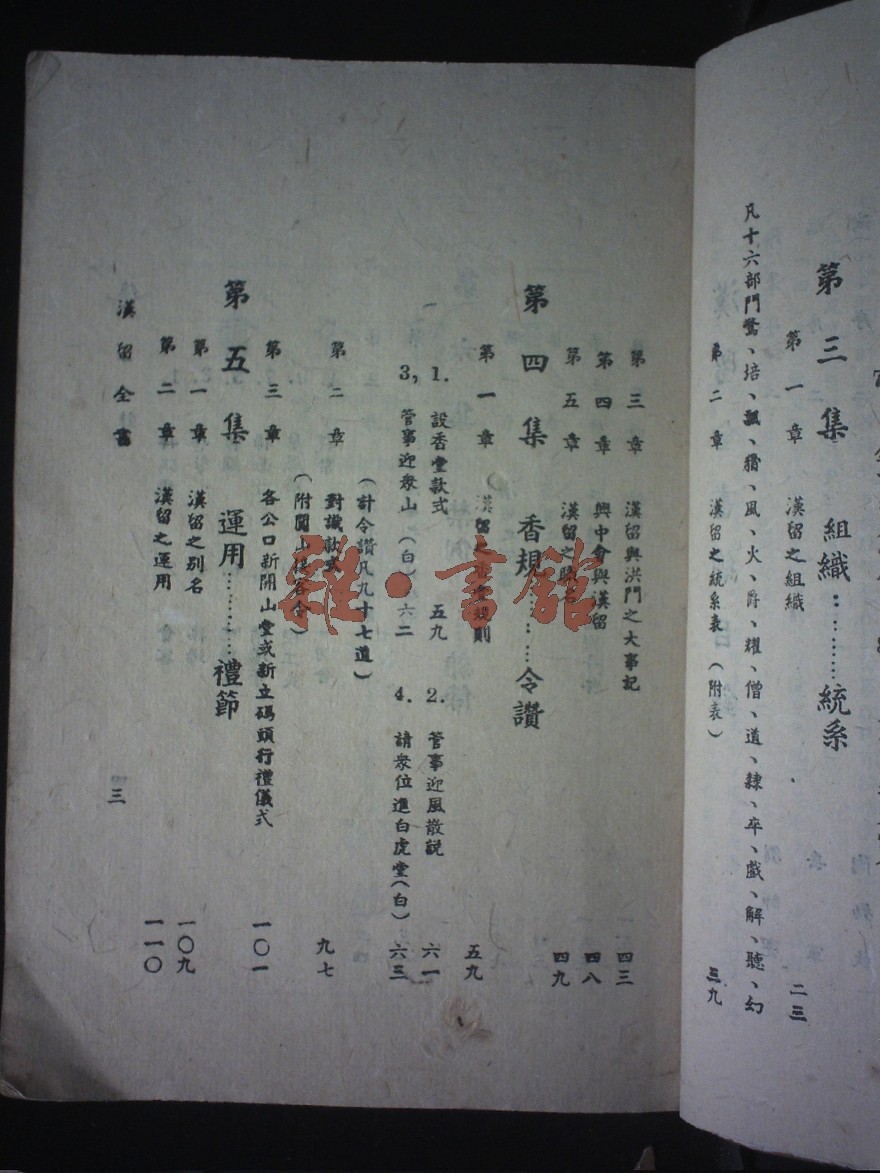 第三集 組織：………統系
第一章 漢留之組織 二三
凡十六部門驚、培、飄、猜、風、火、爵、耀、僧、道、隸、卒、戲、解、聽、幻
第二章 漢留之統系表（附表） 三九
第三章 漢留與洪門之大事記 四三
第四章 興中會與漢留 四八
第五章 漢留之 四九
第四集 香規………令讚
第一章 漢留之香堂規則 五九
1. 設香堂款式 五九 2. 管事迎風散説 六一
3, 管事迎衆山（白）六二 4. 請衆位進白虎堂（白） 六三
（計令讚凡九十七道）
第二章 對識款式 九七
（附開山）
第三章 各公口新開山堂或新立碼頭行禮儀式 一〇一
第五集 運用…………禮節
第一章 漢留之别名 一〇九
第二章 漢留之運用 一一〇
漢留全書 三
雜·書館